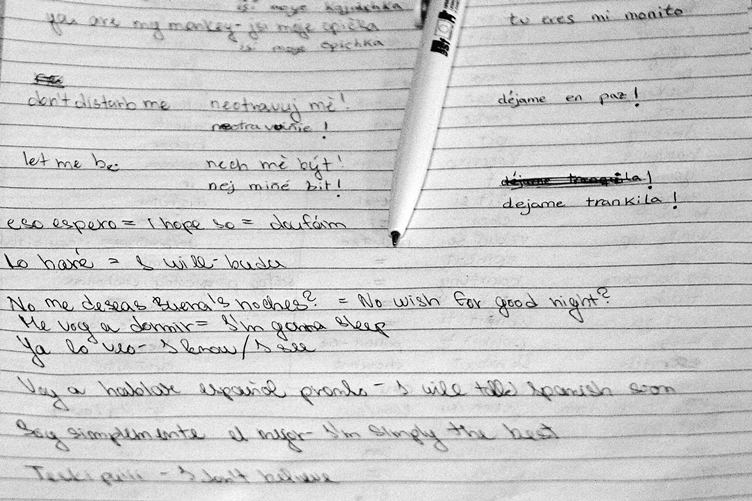 is moje
you are my monkey - jsi moje opička tu eres mi monito
is moje opichka
don't disturb me neotravuj mě! déjame en paz!
let me be nech mě být!
nej mině bit! déjame
dejame trankila!
eso espero = I hope so = doufám
Lo haré = I will - budu
No me deseas buena's noches? = No wish for good night?
Me voy a dormir = I'm gonna sleep
Ya lo veo - I know / I see
Voy a hablar español pronto - I will Spanish soon
Soy simplemente el mejor - I'm simply the best
- I don't believe